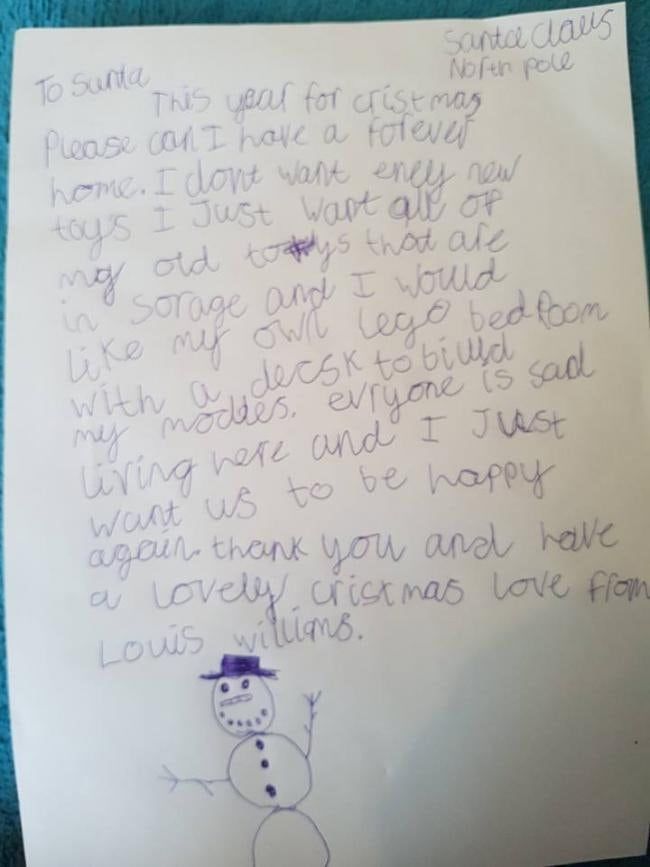 Santa claus
North pole
To Santa
This year for cristmas
Please can I have a forever
home. I dont want eney new
toys I Just want all of
my old toys that are
in sorage and I would
like my own lego bedroom
with a decsk to biulld
my modles. evryone is sad
living here and I Just
want us to be happy
again. thank you and have
a lovely cristmas love from
Louis williams.